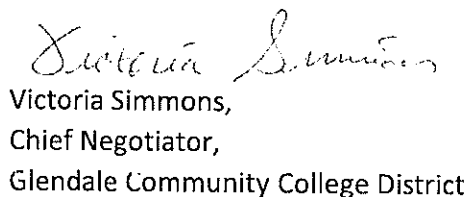 Victoria Simmons
Victoria Simmons,
Chief Negotiator,
Glendale Community College District